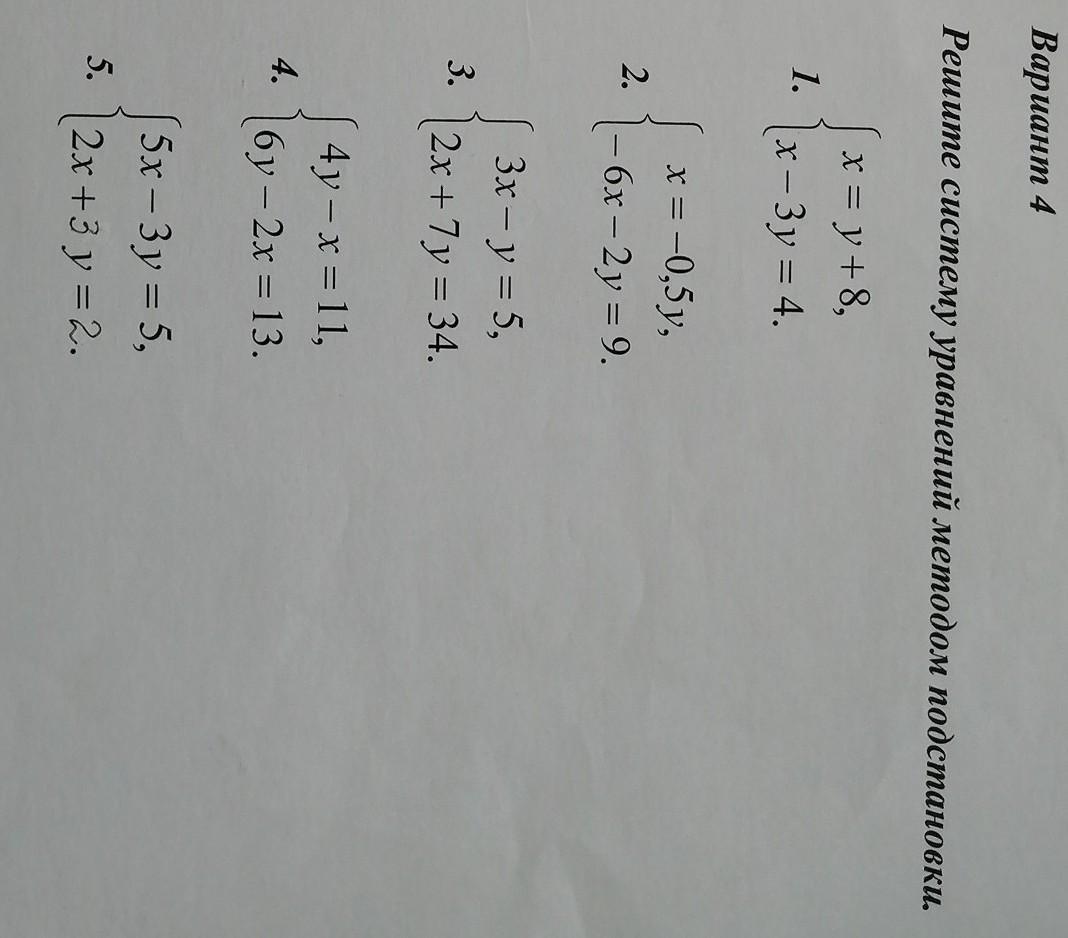 Вариант 4
Решите систему уравнений методом подстановки.
1. { x = y + 8,
x − 3y = 4.
2. { x = −0,5y,
−6x − 2y = 9.
3. { 3x − y = 5,
2x + 7y = 34.
4. { 4y − x = 11,
6y − 2x = 13.
5. { 5x − 3y = 5,
2x + 3y = 2.